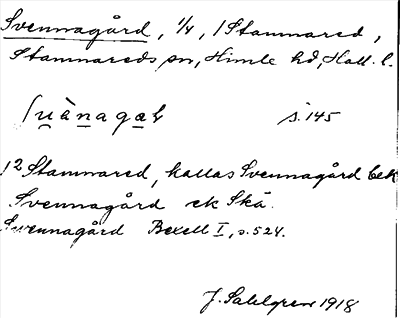 Svennagård, 1/4, 1 Stamnared,
Stamnareds sn, Himle hd, Hall. l.
s. 145
1 2 Stamnared, kallas Svennagård
Svennagård ek Skä.
Svennagård Bexell I, s. 524.
J. Sahlgren 1918